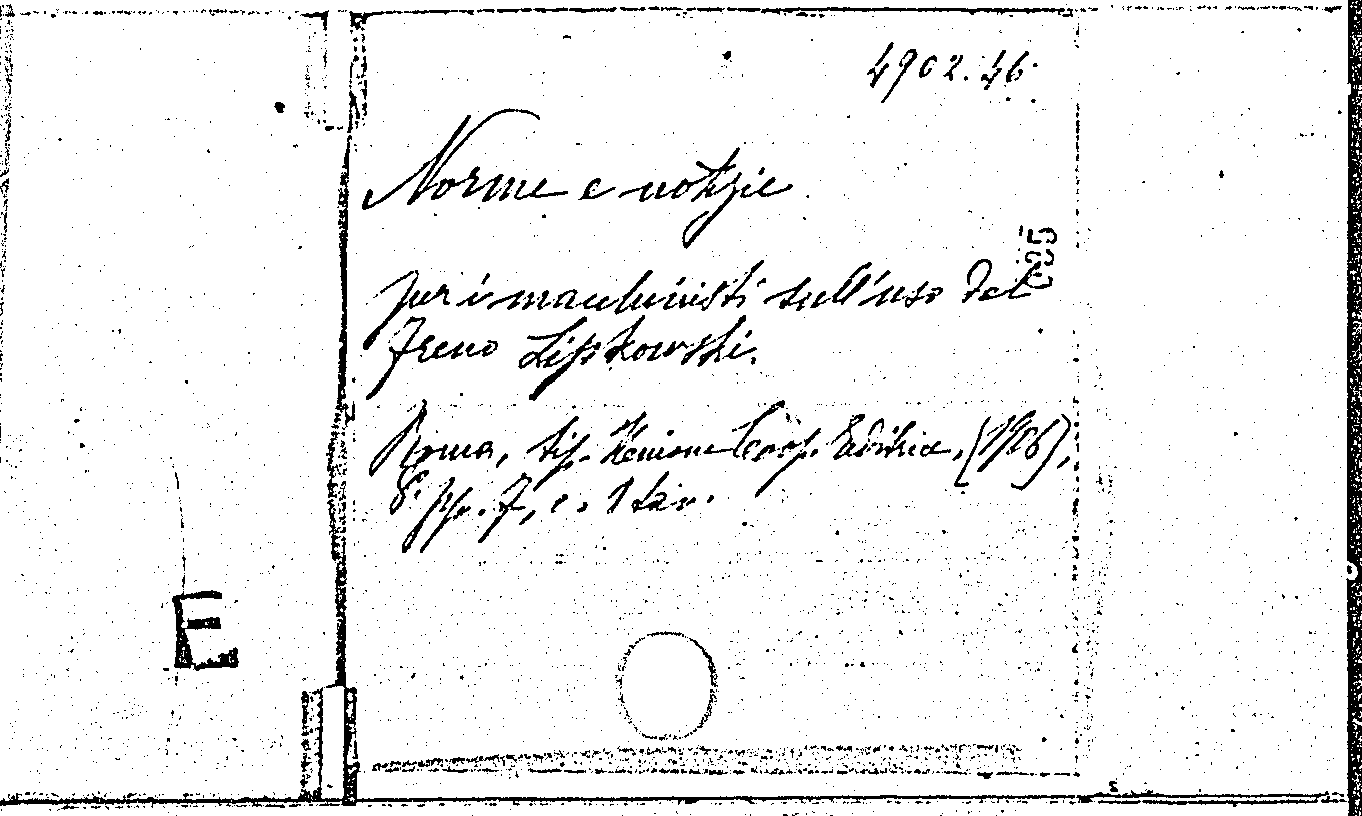 4902.46
Norme e notizie
per i macchinisti sull'uso del
freno Lipkowski.
Roma, tip. Unione Coop. Editrice, (1906),
8° pp. 7, c. 1 tav.
E